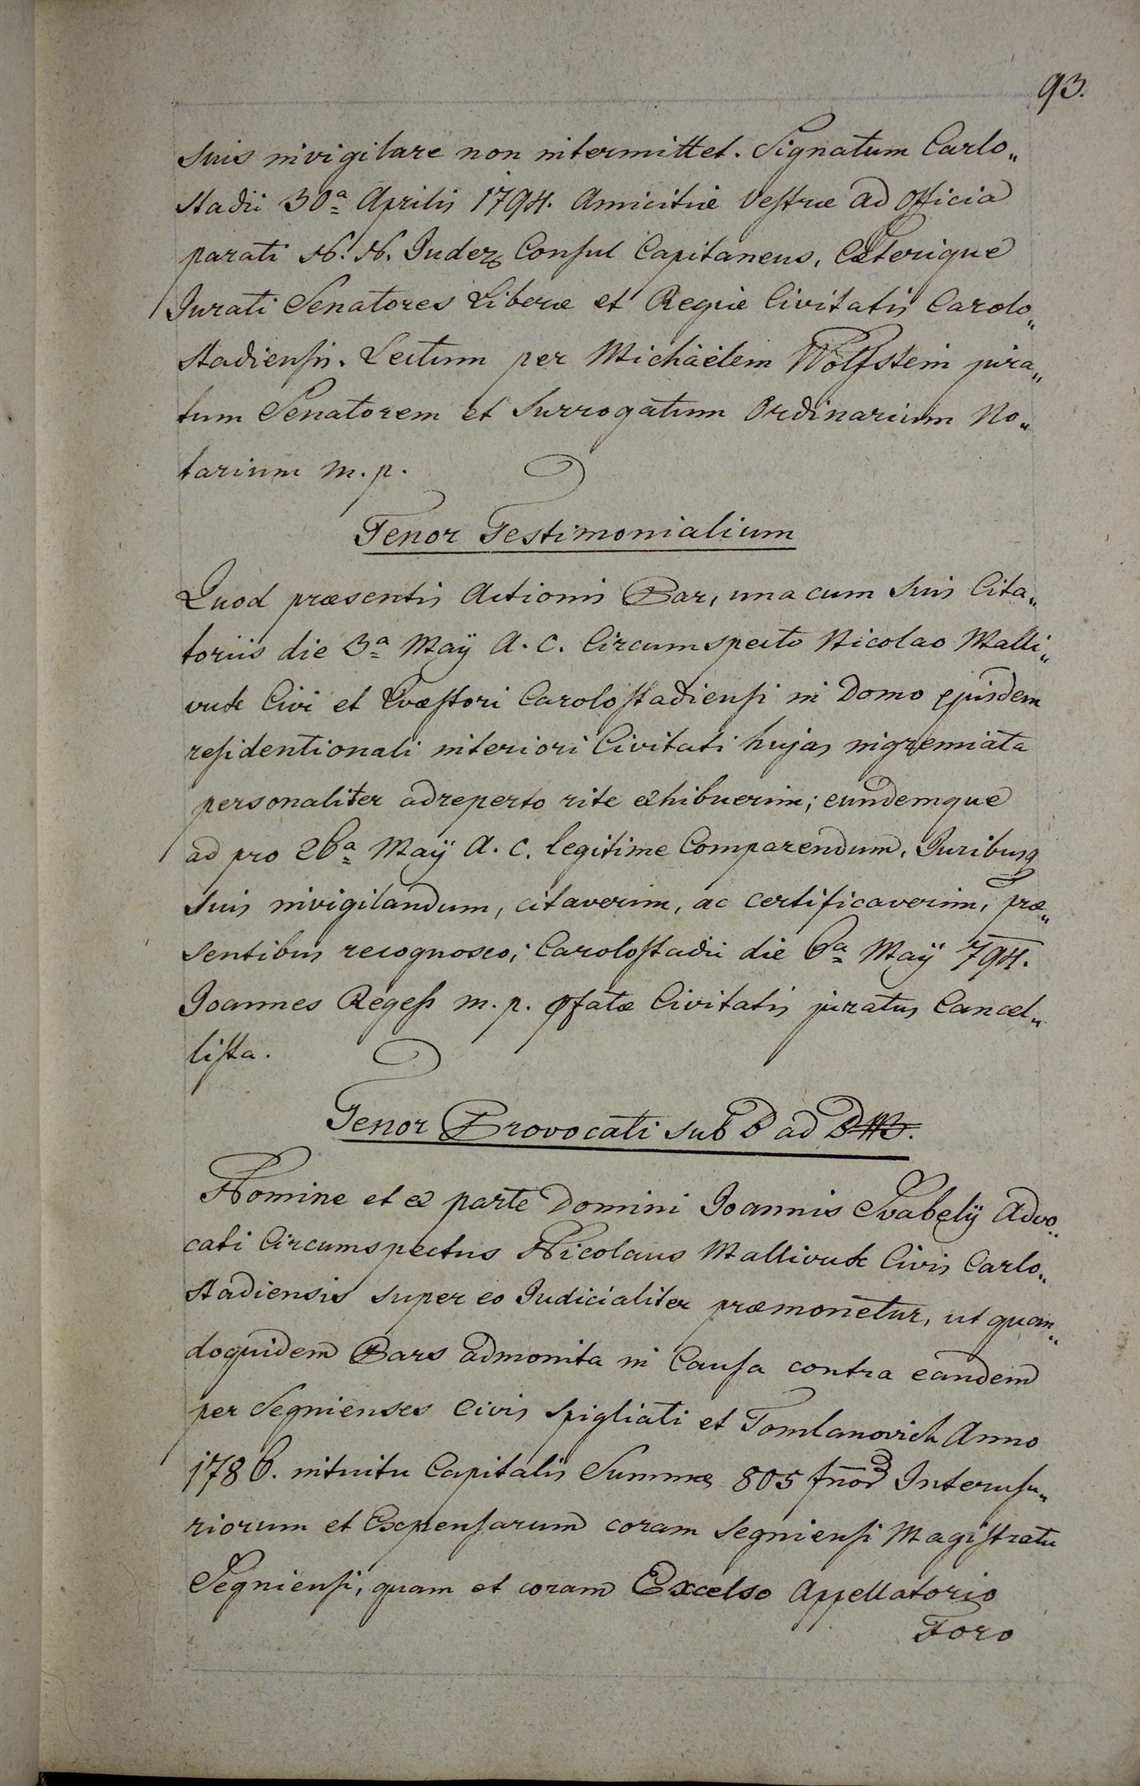 93.
suis invigilare non intermittet. Signatum Carlo„
stadii 30ª Aprilis 1794. Amicitiæ Vestræ ad officia
parati N. N. Judex Consul Capitaneus, Cæterique
Jurati Senatores Liberæ et Regiæ Civitatis Carolo„
stadiensis. Lectum per Michäelem Wolfstein jura„
tum Senatorem et Surrogatum Ordinarium No„
tarium m. p.
Tenor Testimonialium
Quod præsentis Actionis Par, una cum suis Cita„
toriis die 3ª Maÿ A. C. Circumspecto Nicolao Malli„
vuk Civi et Quæstori Carolostadiensi in Domo ejusdem
residentionali interiori Civitati hujas ingremiata
personaliter adreperto rite exhibuerim; eundemque
ad pro 26ª Maÿ A. C. legitime Comparendum, Juribusq
suis invigilandum, citaverim, ac certificaverim, præ„
sentibus recognosco; Carolostadii die 6ª Maÿ 794.
Joannes Regess m. p. pfatæ Civitatis juratus Cancel„
lista.
Tenor Provocati sub D ad
Nomine et ex parte Domini Joannis Svabelÿ Advo„
cati Circumspectus Nicolaus Mallivuk Civis Carlo„
stadiensis super eo Judicialiter præmonetur, ut quan„
doquidem Pars admonita in Causa contra eandem
per Segnienses Civis Spigliati et Tomlanovich Anno
1786. intuitu Capitalis Summæ 805 fnor Interusu„
riorum et Expensarum coram Segniensi Magistratu
Segniensi, quam et coram Excelso Appellatorio
Foro